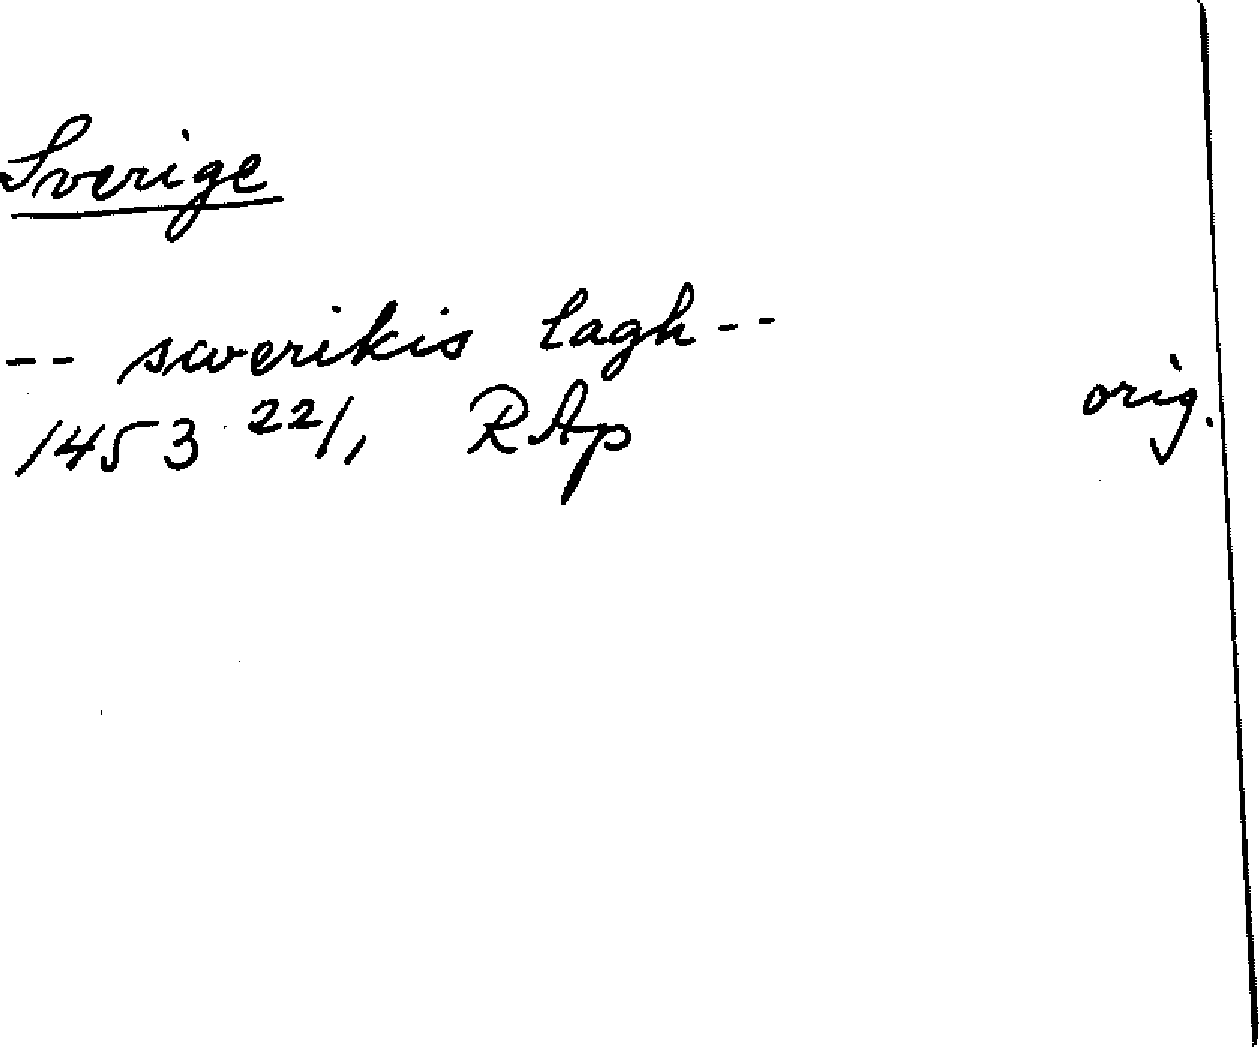 Sverige
-- swerikis lagh --
1453 22/1 RAp orig.